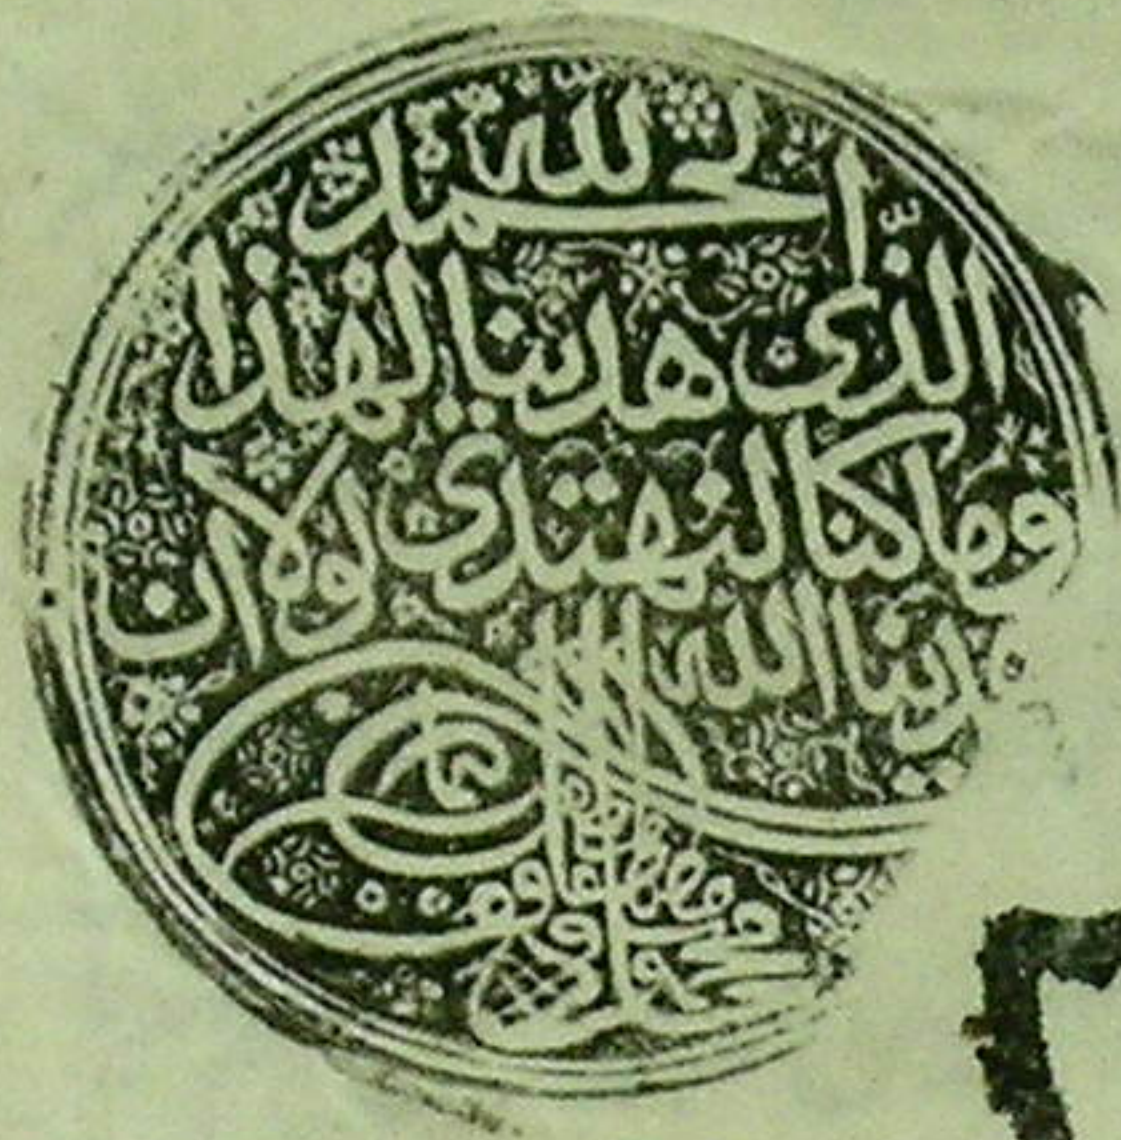 الحمد لله
الذى هدينا لهذا
وما كنا لنهتدي لولا ان
دينا الله